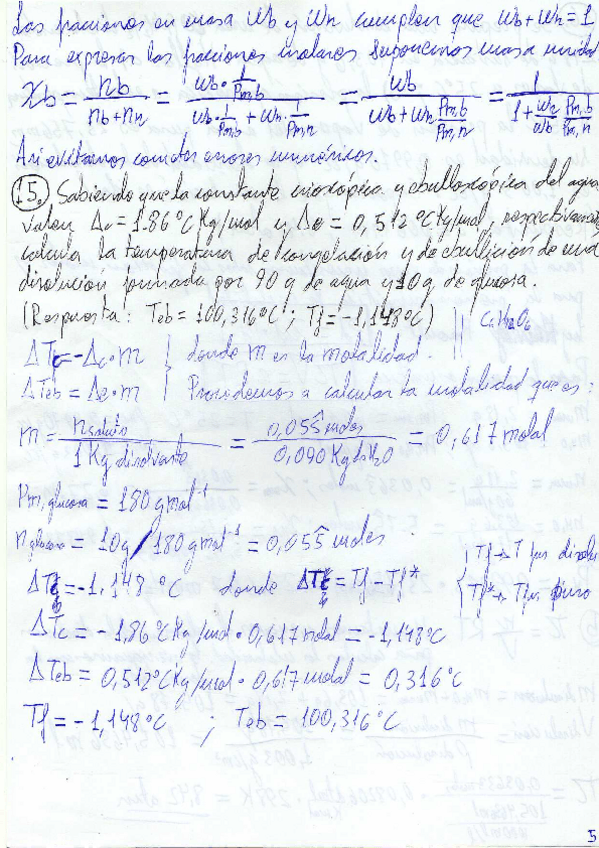 Las fracciones en masa ωb y ωn cumplen que ωb + ωn = 1
Para expresar las fracciones molares suponemos masa unidad
Xb = nb/(nb+nn) = (ωb · 1/Pm,b)/(ωb · 1/Pm,b + ωn · 1/Pm,n) = ωb/(ωb + ωn Pm,b/Pm,n) = 1/(1 + ωn/ωb Pm,b/Pm,n)
Así evitamos cometer errores numéricos.
15. Sabiendo que la constante crioscópica y ebulloscópica del agua
valen Δc = 1.86 °C Kg/mol y Δe = 0,512 °C Kg/mol, respectivamente,
calcula la temperatura de congelación y de ebullición de una
disolución formada por 90 g de agua y 10 g. de glucosa.
(Respuesta: Teb = 100,316 °C ; Tf = -1,148 °C) || C6H12O6
ΔTc = -Δc · m | donde m es la molalidad.
ΔTeb = Δe · m | Procedemos a calcular la molalidad que es:
m = n soluto / 1 Kg disolvente = 0,055 moles / 0,090 Kg de H2O = 0,617 molal
Pm, glucosa = 180 g mol-1
n glucosa = 10 g / 180 g mol-1 = 0,055 moles.
ΔTc = -1,148 °C donde ΔTc = Tf - Tf* { Tf → T fus disolu
Tf* → T fus puro
ΔTc = -1,86 °C Kg/mol · 0,617 molal = -1,148 °C
ΔTeb = 0,512 °C Kg/mol · 0,617 molal = 0,316 °C
Tf = -1,148 °C ; Teb = 100,316 °C
5